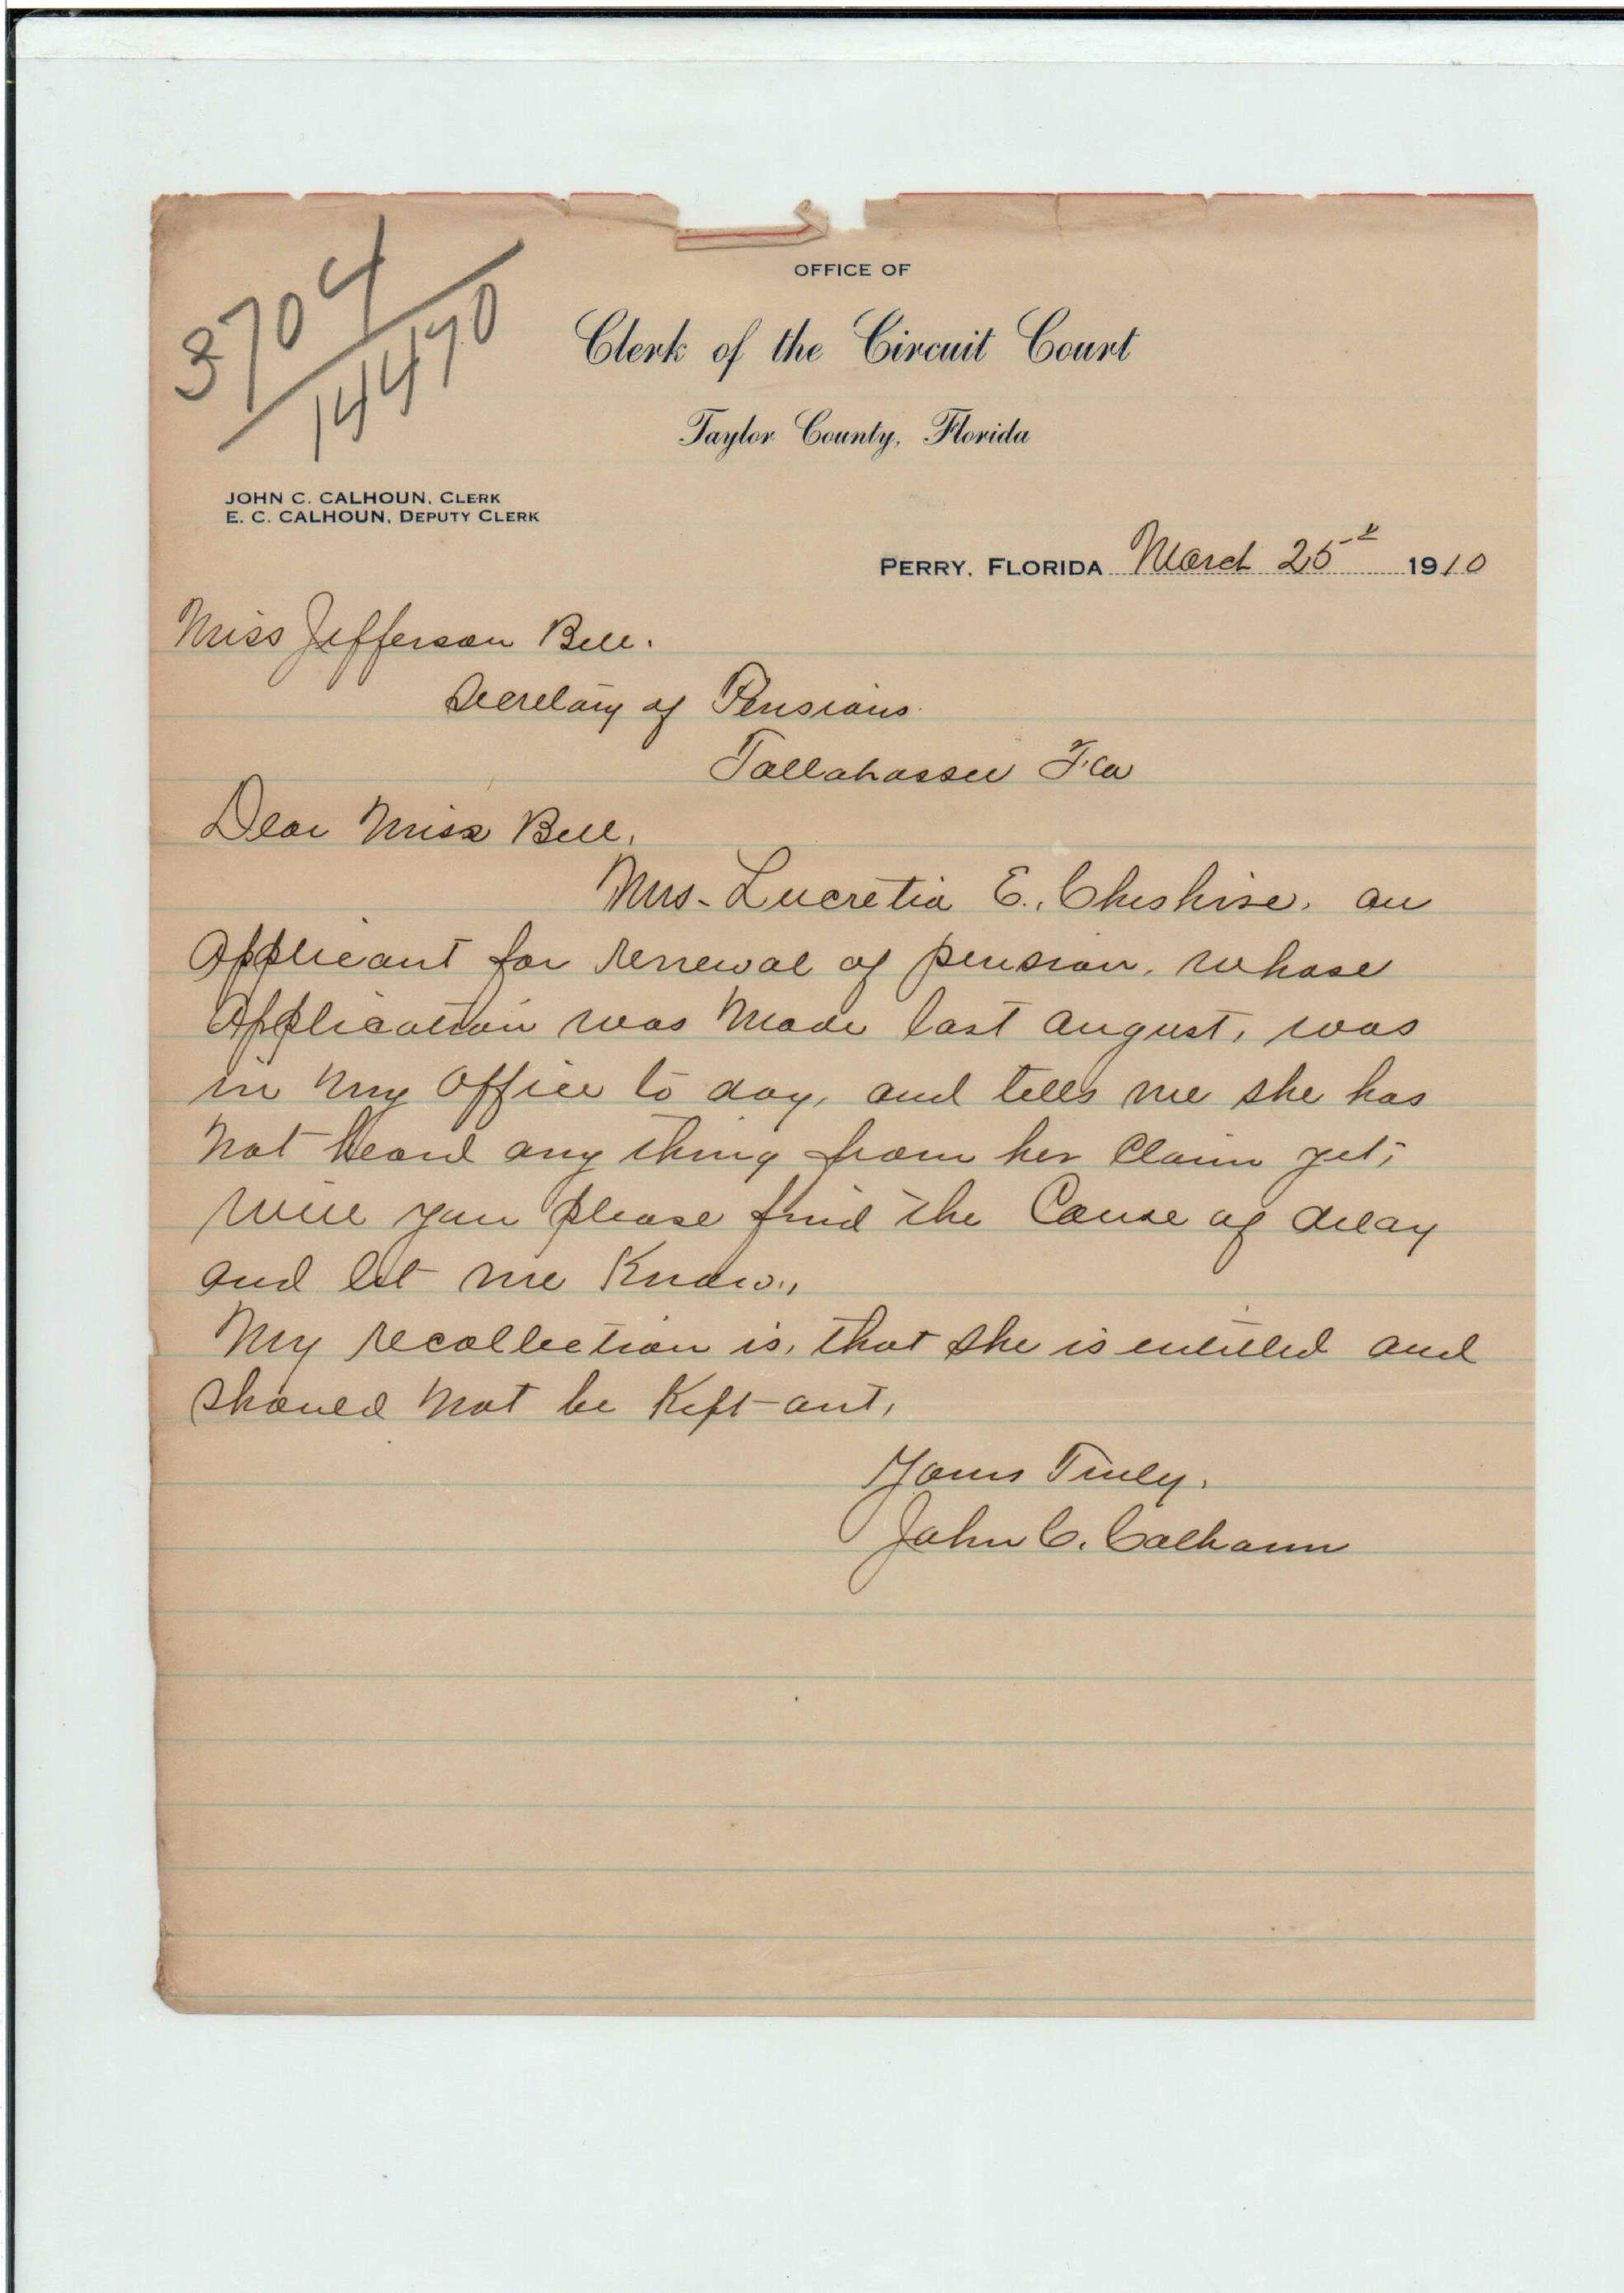 3704
14470
OFFICE OF
Clerk of the Circuit Court
Taylor County, Florida
JOHN C. CALHOUN, CLERK
E. C. CALHOUN, DEPUTY CLERK
PERRY, FLORIDA March 25 1910
Miss Jefferson Bell.
Secretary of Pensions.
Tallahassee Fla
Dear Miss Bell,
Mrs. Lucretia E. Cheshire, an
Applicant for renewal of pension, whose
Application was made last August, was
in my Office to day, and tells me she has
not heard any thing from her Claim yet;
Will you please find the Cause of delay
and let me Know.,
My recollection is, that she is entitled and
should not be Kept out,
Yours Truly,
John C. Calhoun